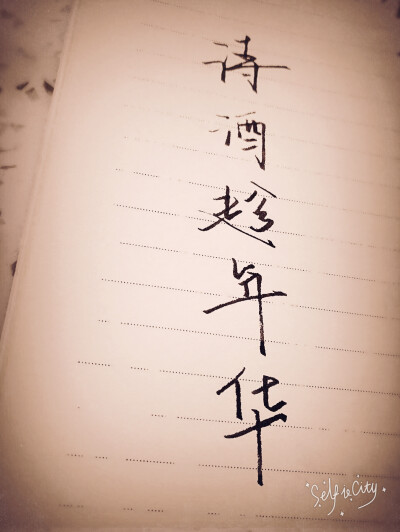 诗酒趁年华
SelfieCity